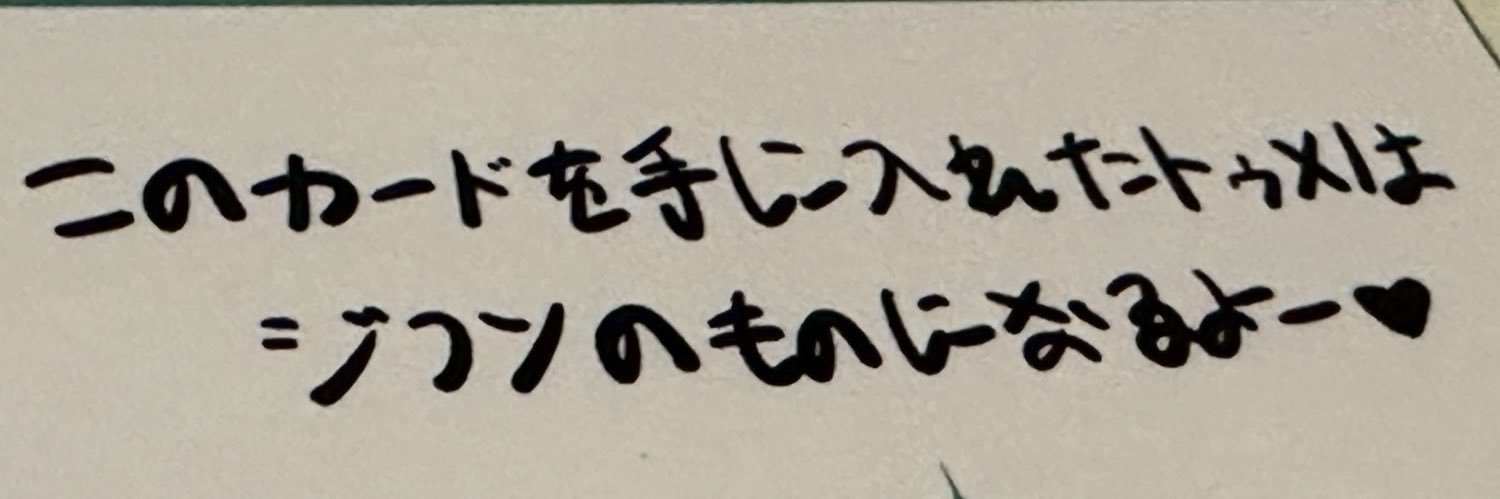 このカードを手に入れたトゥメは
=ジフンのものになるよー♥